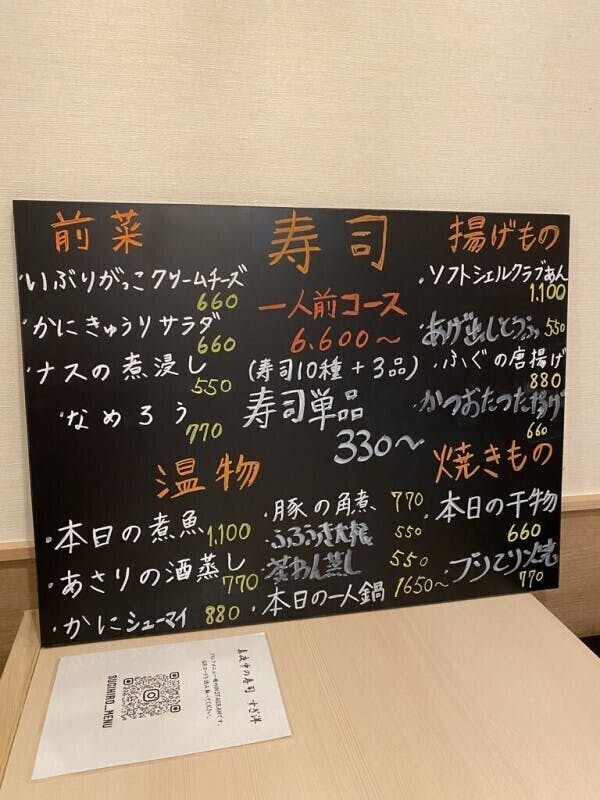 前菜
・いぶりがっこクリームチーズ
660
・かにきゅうりサラダ
660
・ナスの煮浸し
550
・なめろう
770
寿司
一人前コース
6.600〜
(寿司10種+3品)
寿司単品
330〜
揚げもの
・ソフトシェルクラブあん
1.100
・あげ出しとうふ 550
・ふぐの唐揚げ
880
・かつおたつた揚げ
660
温物
・本日の煮魚 1,100
・あさりの酒蒸し
770
・かにシューマイ 880
・豚の角煮 770
・ふろふき大根 550
・茶わん蒸し 550
・本日の一人鍋 1650〜
焼きもの
・本日の干物
660
・ブリてり焼
770
真夜中の寿司 すぎ洋
SUGIHIRO_MENU